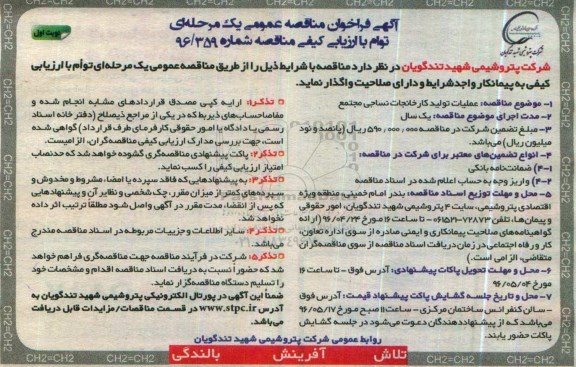 آگهی فراخوان مناقصه عمومی یک مرحله‌ای
توام با ارزیابی کیفی مناقصه شماره ۹۶/۳۵۹
نوبت اول
شرکت پتروشیمی شهید تندگویان
شرکت پتروشیمی شهید تندگویان در نظر دارد مناقصه با شرایط ذیل را از طریق مناقصه عمومی یک مرحله‌ای توأم با ارزیابی
کیفی به پیمانکار واجد شرایط و دارای صلاحیت واگذار نماید.
۱- موضوع مناقصه: عملیات تولید کارخانجات نساجی مجتمع
۲- مدت اجرای موضوع مناقصه: یک سال
۳- مبلغ تضمین شرکت در مناقصه ۵۹۰/۰۰۰/۰۰۰ ریال (پانصد و نود
میلیون ریال) می‌باشد.
۴- انواع تضمین‌های معتبر برای شرکت در مناقصه:
(۴-۱ ضمانت‌نامه بانکی
(۴-۲ واریز وجه به حساب اعلام شده در اسناد مناقصه
۵- محل و مهلت توزیع اسناد مناقصه: بندر امام خمینی، منطقه ویژه
اقتصادی پتروشیمی، سایت ۴ پتروشیمی شهید تندگویان، امور حقوقی
و پیمان‌ها، تلفن ۷۲۸۷۳-۰۶۱۵۲۱ تا ساعت ۱۶ مورخ ۹۶/۰۴/۲۴ (ارائه
گواهینامه‌های صلاحیت پیمانکاری و ایمنی صادره از سوی اداره تعاون،
کار و رفاه اجتماعی در زمان دریافت اسناد مناقصه از سوی مناقصه‌گران
متقاضی، الزامی است.)
۶- محل و مهلت تحویل پاکات پیشنهادی: آدرس فوق - تا ساعت ۱۶
مورخ ۹۶/۰۵/۰۴
۷- محل و تاریخ جلسه گشایش پاکت پیشنهاد قیمت: آدرس فوق
- سالن کنفرانس ساختمان مرکزی - ساعت ۱۱ صبح مورخ ۹۶/۰۵/۱۷
می‌باشد که از پیشنهاددهندگان دعوت می‌شود در جلسه گشایش
پاکات حضور یابند.
تذکر۱: ارایه کپی مصدق قراردادهای مشابه انجام شده و
مفاصاحساب‌های ذیربط که در یکی از مراجع ذیصلاح (دفترخانه اسناد
رسمی یا دادگاه یا امور حقوقی کارفرمای طرف قرارداد) گواهی شده
است، جهت بررسی مدارک ارزیابی کیفی مناقصه‌گران، الزامیست.
تذکر۲: پاکت پیشنهادی مناقصه‌گری گشوده خواهد شد که حدنصاب
امتیاز ارزیابی کیفی را کسب نماید.
تذکر۳: به پیشنهادهایی که فاقد سپرده یا امضاء، مشروط و مخدوش و
سپرده‌های کمتر از میزان مقرر، چک شخصی و نظایر آن و پیشنهادهایی
که پس از انقضاء مدت مقرر در آگهی واصل شود مطلقاً ترتیب اثر داده
نخواهد شد.
تذکر۴: سایر اطلاعات و جزییات مربوطه در اسناد مناقصه مندرج
می‌باشد.
تذکر۵: شرکت در فرآیند مناقصه جهت مناقصه‌گری فراهم خواهد
شد که حضوراً نسبت به دریافت اسناد مناقصه اقدام و مشخصات خود
را تسلیم دستگاه مناقصه‌گزار نماید.
ضمناً این آگهی در پورتال الکترونیکی پتروشیمی شهید تندگویان به
آدرس www.stpc.ir در قسمت مناقصات/مزایدات قابل دریافت
می‌باشد.
روابط عمومی شرکت پتروشیمی شهید تندگویان
تلاش آفرینش بالندگی
CH2=CH2 CH2=CH2 CH2=CH2 CH2=CH2 CH2=CH2